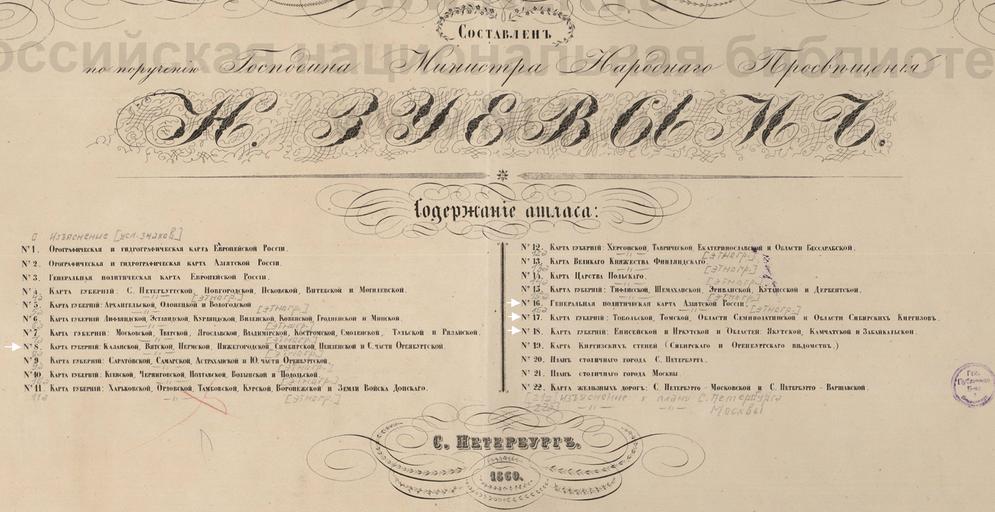 Российская национальная библиоте
Составленъ
по порученію Господина Министра Народнаго Просвѣщенія
Н. ЗУЕВЫМЪ.
Содержаніе атласа:
0 Изъяснение [усл. знаков]
№ 1. Орографическая и гидрографическая карта Европейской Россіи.
№ 2. Орографическая и гидрографическая карта Азіятской Россіи.
№ 3. Генеральная политическая карта Европейской Россіи.
№ 4. Карта губерній: С. Петербургской, Новгородской, Псковской, Витебской и Могилевской.
[этногр.]
№ 5. Карта губерній: Архангельской, Олонецкой и Вологодской
[этногр.]
№ 6. Карта губерній Лифляндской, Эстляндской, Курляндской, Виленской, Ковенской, Гродненской и Минской.
№ 7. Карта губерній: Московской, Тверской, Ярославской, Владимірской, Костромской, Смоленской, Тульской и Рязанской.
№ 8. Карта губерній: Казанской, Вятской, Пермской, Нижегородской, Симбирской, Пензенской и С. части Оренбургской.
№ 9. Карта губерній: Саратовской, Самарской, Астраханской и Ю. части Оренбургской.
№ 10. Карта губерній: Кіевской, Черниговской, Полтавской, Волынской и Подольской.
№ 11. Карта губерній: Харьковской, Орловской, Тамбовской, Курской, Воронежской и Земли Войска Донскаго.
11а —"— [этногр.]
№ 12. Карта губерній: Херсонской, Таврической, Екатеринославской и Области Бессарабской.
[этногр.]
№ 13. Карта Великаго Княжества Финляндскаго.
[этногр.]
№ 14. Карта Царства Польскаго
№ 15. Карта губерній: Тифлисской, Шемахинской, Эриванской, Кутаисской и Дербентской.
№ 16. Генеральная политическая карта Азіятской Россіи.
№ 17. Карта губерній: Тобольской, Томской, Области Семипалатинской и Области Сибирскихъ Киргизовъ.
№ 18. Карта губерній: Енисейской и Иркутской и Областей: Якутской, Камчатской и Забайкальской.
№ 19. Карта Киргизскихъ степей (Сибирскаго и Оренбургскаго вѣдомствъ.)
№ 20. Планъ столичнаго города С. Петербурга.
№ 21. Планъ столичнаго города Москвы
№ 22. Карта желѣзныхъ дорогъ: С. Петербурго - Московской и С. Петербурго - Варшавской.
[21а] изъяснение к плану С. Петербурга
—"— Москвы
С. ПЕТЕРБУРГЪ.
1860.
Гос.
Публичная